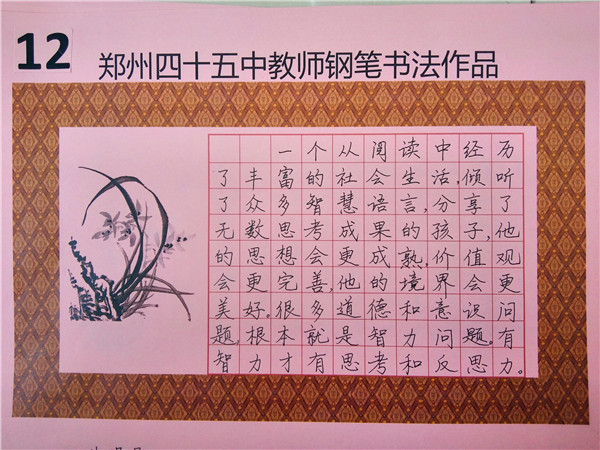 12
郑州四十五中教师钢笔书法作品
一个从阅读中经历
了丰富的社会生活,倾听
了众多智慧语言,分享了
无数思考成果的孩子,他
的思想会更成熟,价值观
会更完善,他的境界会更
美好。很多道德和意识问
题,根本就是智力问题。有
智力才有思考和反思力。